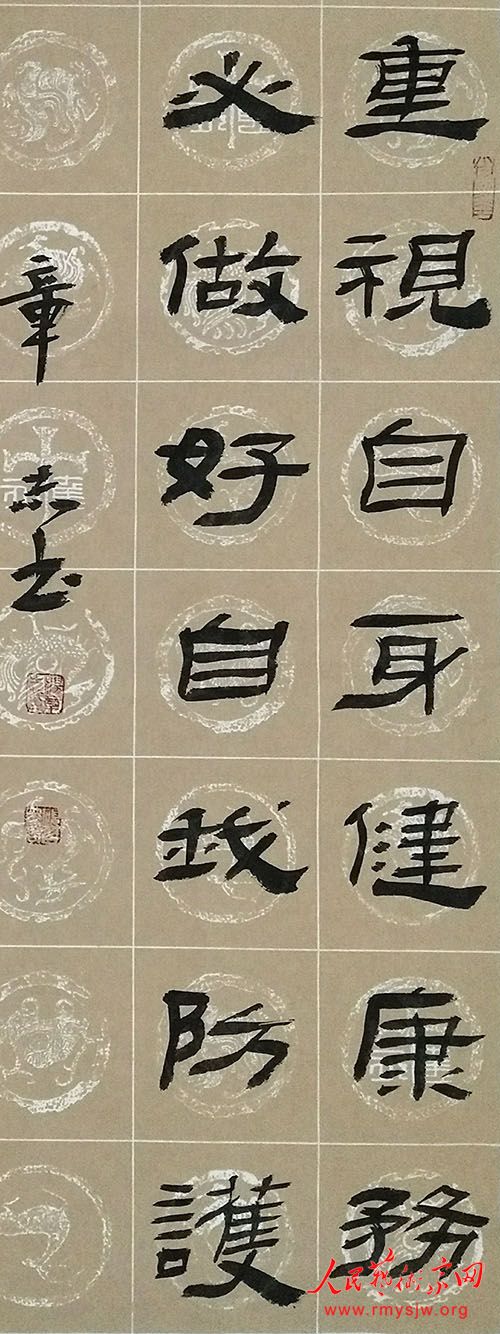 重視自身健康務
必做好自我防護
章志书
人民艺术家网
www.rmysjw.org